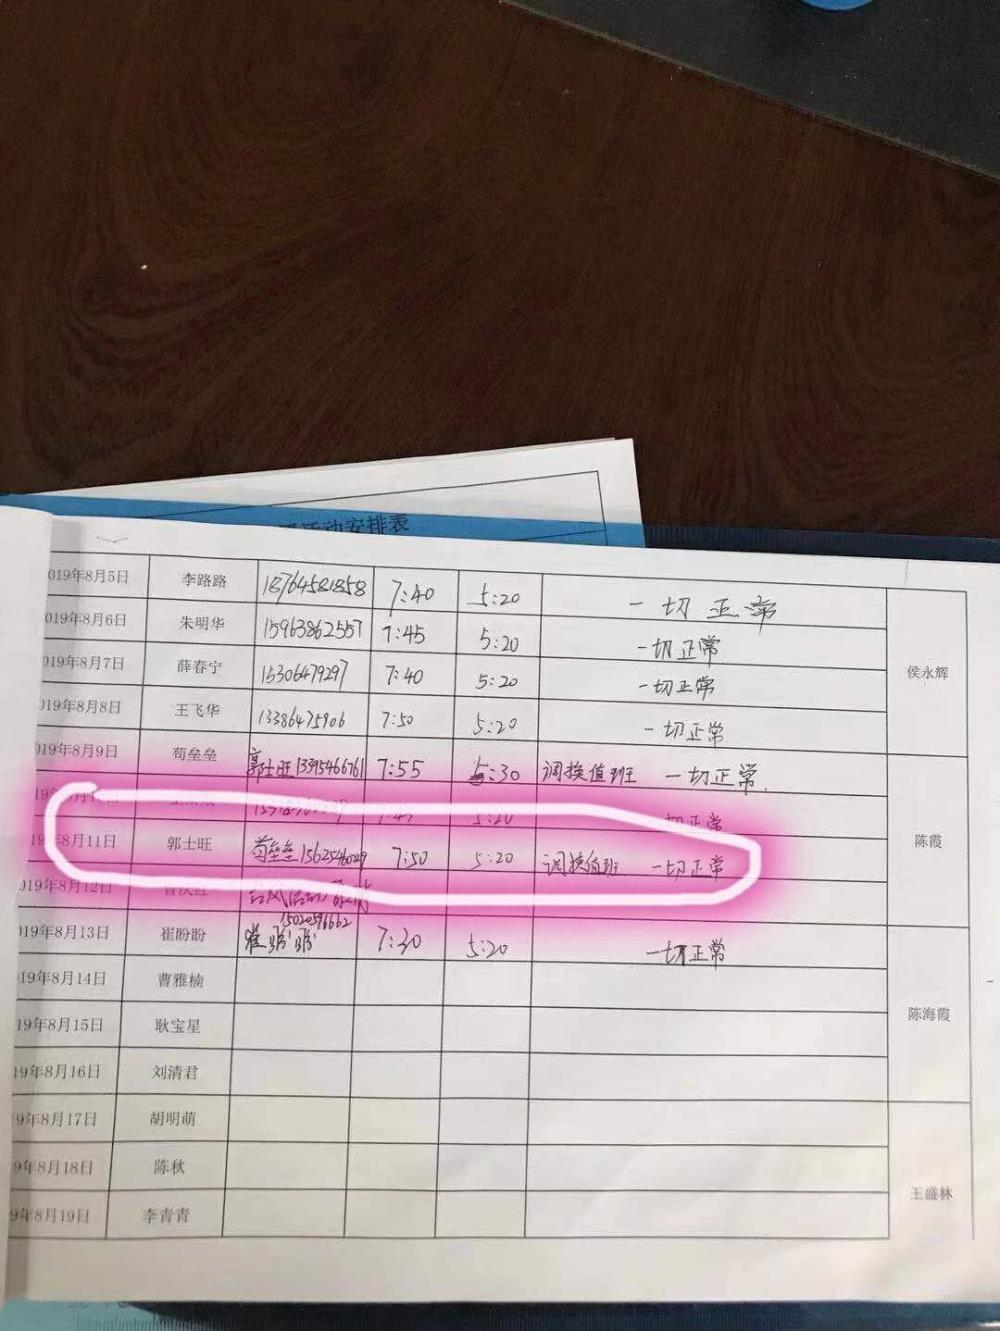 动安排表
019年8月5日 李路路 18764581858 7:40 5:20 一切正常
019年8月6日 朱明华 15963862557 7:45 5:20 一切正常
019年8月7日 薛春宁 15306479297 7:40 5:20 一切正常 侯永辉
019年8月8日 王飞华 13386475906 7:50 5:20 一切正常
019年8月9日 荀垒垒 郭士旺 13395466761 7:55 5:30 调换值班 一切正常.
5:20 一切正常
19年8月11日 郭士旺 荀垒垒 7:50 5:20 调换值班 一切正常 陈霞
019年8月12日
019年8月13日 崔盼盼 崔盼盼 15020596662 7:30 5:20 一切正常
19年8月14日 曹雅楠
19年8月15日 耿宝星 陈海霞
19年8月16日 刘清君
9年8月17日 胡明萌
9年8月18日 陈秋 王盛林
9年8月19日 李青青